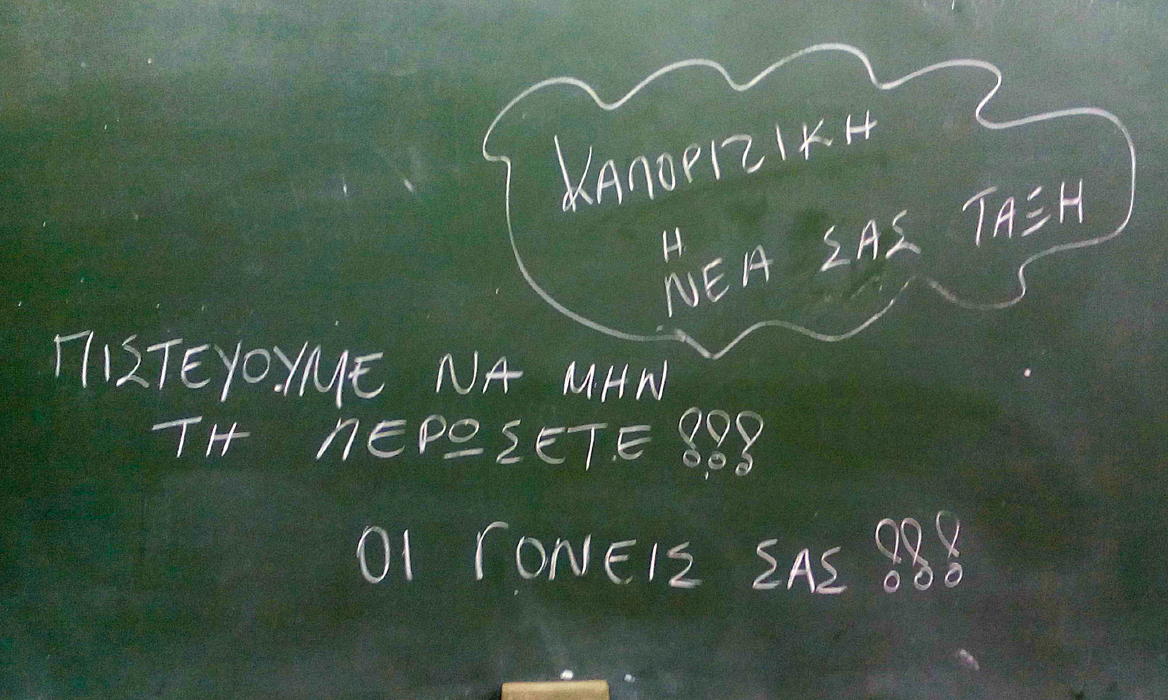 ΚΑΛΟΡΙΖΙΚΗ
Η
ΝΕΑ ΣΑΣ ΤΑΞΗ
ΠΙΣΤΕΥΟΥΜΕ ΝΑ ΜΗΝ
ΤΗ ΛΕΡΩΣΕΤΕ !!!
ΟΙ ΓΟΝΕΙΣ ΣΑΣ !!!